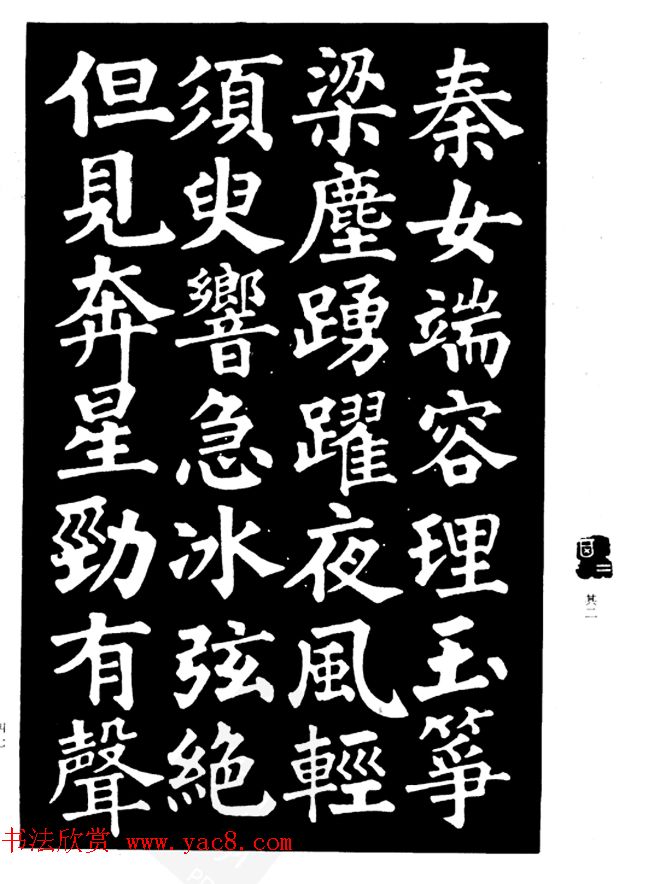 秦女端容理玉箏
梁塵踴躍夜風輕
須臾響急冰弦絕
但見奔星勁有聲
其二
四七
书法欣赏 www.yac8.com